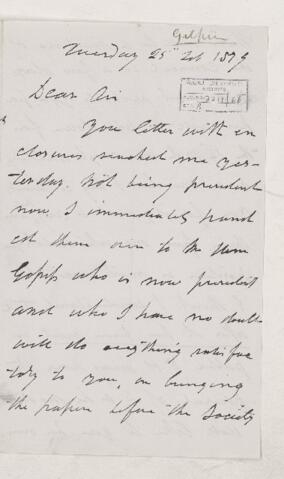 Tuesday 25th Feb 1879
Dear Sir
You letter with en
closures reached me yes-
terday. Not being president
now, I immediately hand
ed them over to Mr
who is now president
and who I have no doubt
will do everything satisfac
tory to you, on bringing
the papers before the Society